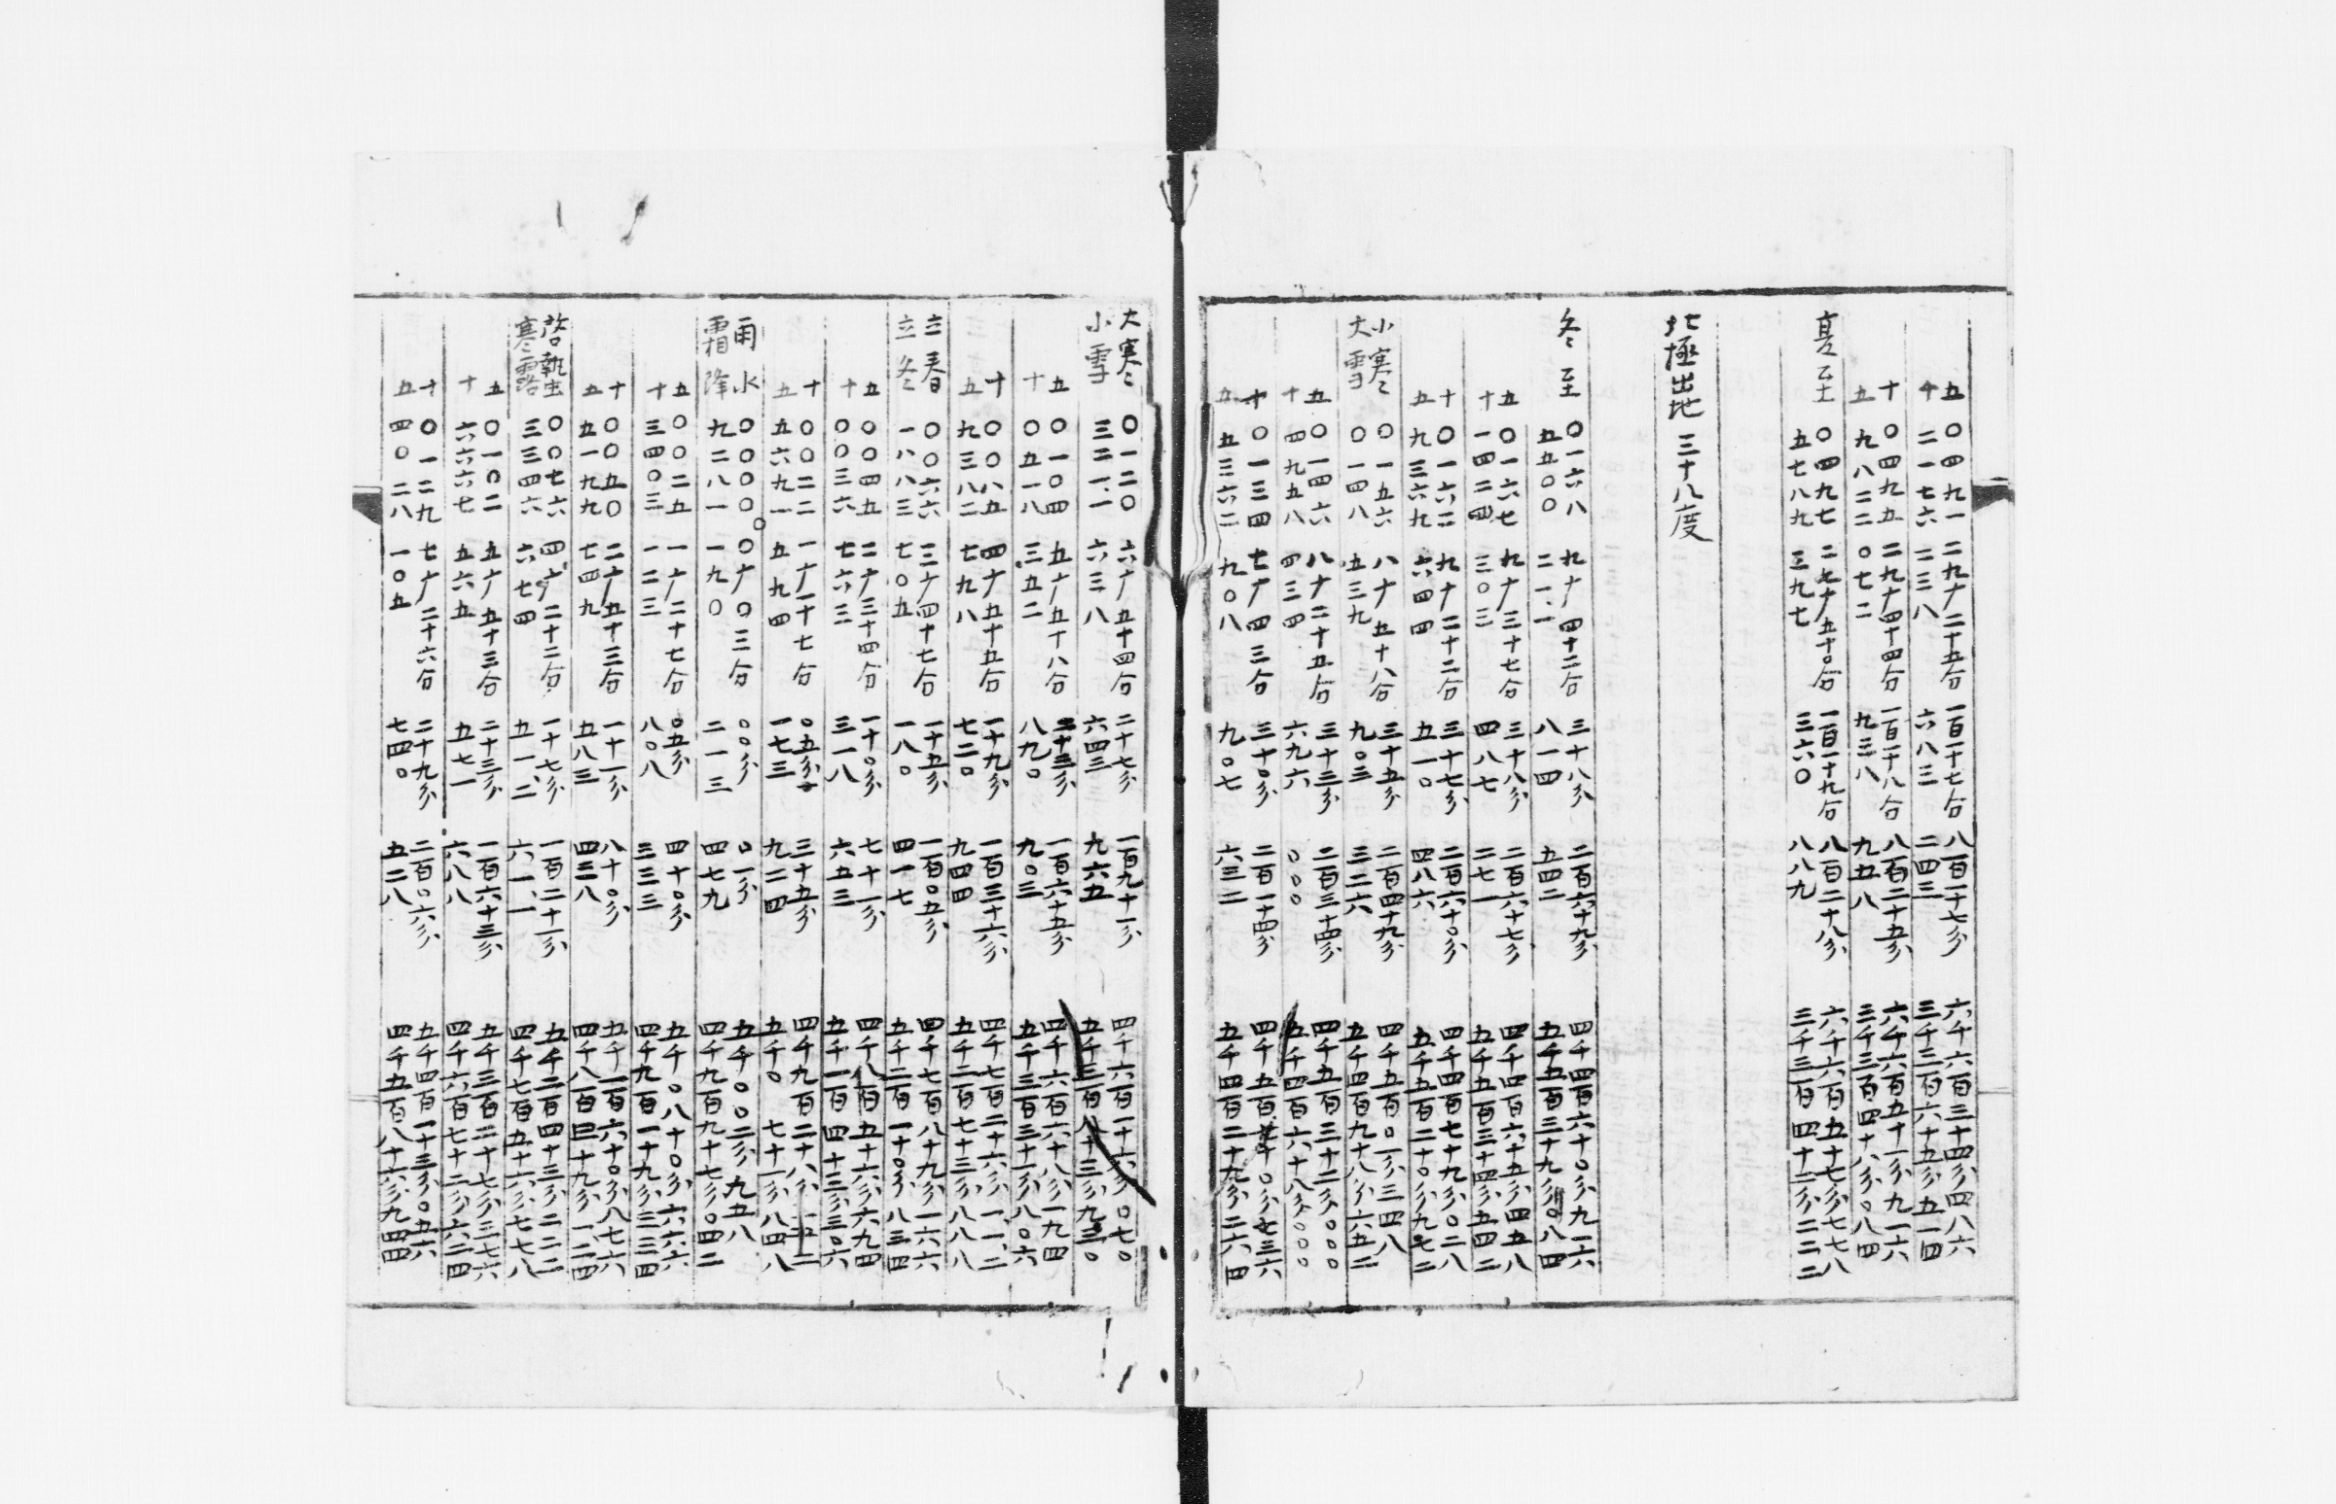 五 〇四九一 二九广二十五分 一百一十七分 八百一十七分 六千六百三十四分四八六
十 二一七六 二三八 六八三 二四三 三千三百六十五分五一四
十 〇四九五 二九广四十四分 一百一十八分 八百二十五分 六千六百五十一分九一六
五 九八二二 〇七二 九三八 九五八 三千三百四十八分〇八四
夏至 〇四九七 二九广五十〇分 一百一十九分 八百二十八分 六千六百五十七分七七八
五七八九 三九七 三六〇 八八九 三千三百四十二分二二二
北極出地 三十八度
冬至 〇一六八 九广四十二分 三十八分 二百六十九分 四千四百六十〇分九一六
五五〇〇 二一一 八一四 五四二 五千五百三十九分〇八四
五 〇一六七 九广三十七分 三十八分 二百六十七分 四千四百六十五分四五八
十 一四二四 三〇三 四八七 二七一 五千五百三十四分五四二
十 〇一六二 九广二十二分 三十七分 二百六十〇分 四千四百七十九分〇二八
五 九三六九 六四四 五一〇 四八六 五千五百二十〇分九七二
小寒 〇一五六 八广五十八分 三十五分 二百四十九分 四千五百〇一分三四八
大雪 〇一四八 五三九 九〇三 三二六 五千四百九十八分六五二
五 〇一四六 八广二十五分 三十三分 二百三十四分 四千五百三十二分〇〇〇
十 四九五八 四三四 六九六 〇〇〇 五千四百六十八分〇〇〇
十 〇一三四 七广四三分 三十〇分 二百一十四分 四千五百七十〇分七三六
五 五三六二 九〇八 九〇七 六三二 五千四百二十九分二六四
大寒 〇一二〇 六广五十四分 二十七分 一百九十一分 四千六百一十六分〇七〇
小雪 三二一一 六三八 六四三 九六五 五千三百八十三分九三〇
五 〇一〇四 五广五十八分 二十三分 一百六十五分 四千六百六十八分一九四
十 〇五一八 三五二 八九〇 九〇三 五千三百三十一分八〇六
十 〇〇八五 四广五十五分 一十九分 一百三十六分 四千七百二十六分一一二
五 九三八二 七九八 七二〇 九四四 五千二百七十三分八八八
立春 〇〇六六 三广四十七分 一十五分 一百〇五分 四千七百八十九分一六六
立冬 一八八三 七〇五 一八〇 四一七 五千二百一十〇分八三四
五 〇〇四五 二广三十四分 一十〇分 七十一分 四千八百五十六分六九四
十 〇〇三六 七六三 三一八 六五三 五千一百四十三分三〇六
十 〇〇二二 一广一十七分 〇五分 三十五分 四千九百二十八分一五二
五 五六九一 五九四 一七三 九二四 五千〇七十一分八四八
雨水 〇〇〇〇 〇广〇三分 〇〇分 〇一分 五千〇〇二分九五八
霜降 九二八一 一九〇 二一三 四七九 四千九百九十七分〇四二
五 〇〇二五 一广二十七分 〇五分 四十〇分 五千〇八十〇分六六六
十 三四〇三 一二三 八〇八 三三三 四千九百一十九分三三四
十 〇〇五〇 二广五十三分 一十一分 八十〇分 五千一百六十〇分八七六
五 五一九九 七四九 五八三 四三八 四千八百三十九分一二四
啓蟄 〇〇七六 四广二十二分 一十七分 一百二十一分 五千二百四十三分二二二
寒露 三三四六 六七四 五一二 六一一 四千七百五十六分七七八
五 〇一〇二 五广五十三分 二十三分 一百六十三分 五千三百二十七分三七六
十 六六六七 五六五 五七一 六八八 四千六百七十二分六二四
十 〇一二九 七广二十六分 二十九分 二百〇六分 五千四百一十三分〇五六
五 四〇二八 一〇五 七四〇 五二八 四千五百八十六分九四四